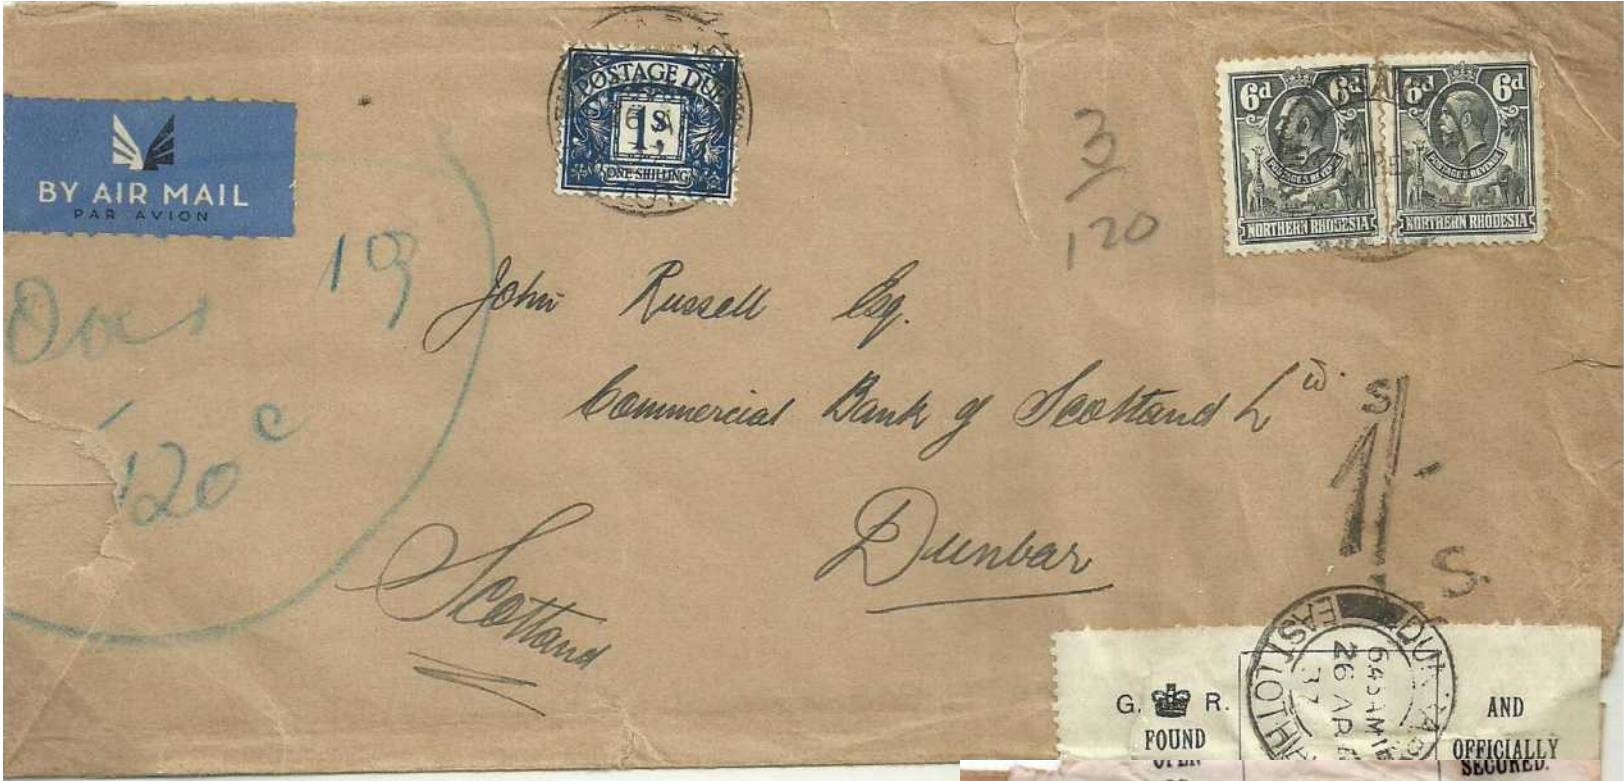 BY AIR MAIL
PAR AVION
POSTAGE DUE
1S
ONE SHILLING
3
120
6d 6d
POSTAGE & REVENUE
NORTHERN RHODESIA
6d 6d
POSTAGE & REVENUE
NORTHERN RHODESIA
John Russell Esq.
Commercial Bank of Scotland Ld.
Dunbar
Scotland
120 c
S
1/-
S.
DUNBAR
EAST LOTHI
26 AP
37
G. R.
FOUND
OPEN
OR
AND
OFFICIALLY
SECURED.